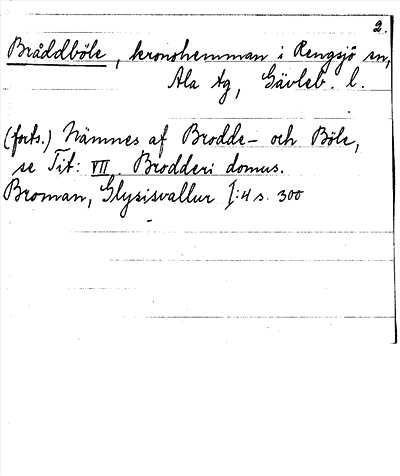 2.
Bråddböle, kronohemman i Rengsjö sn,
Ala tg, Gävleb. l.
(forts.) Nämnes af Brodde- och Böle,
se Tit: VII. Brodderi domus.
Broman, Glysisvallur I:4 s. 300